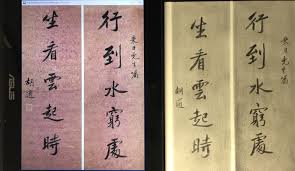 先生
行到水窮處
坐看雲起時
胡適
先生
行到水窮處
坐看雲起時
胡適